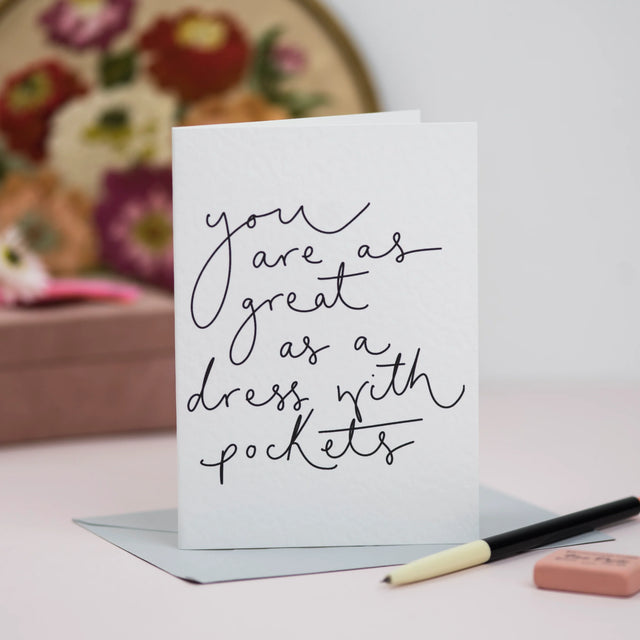 you
are as
great
as a
dress with
pockets